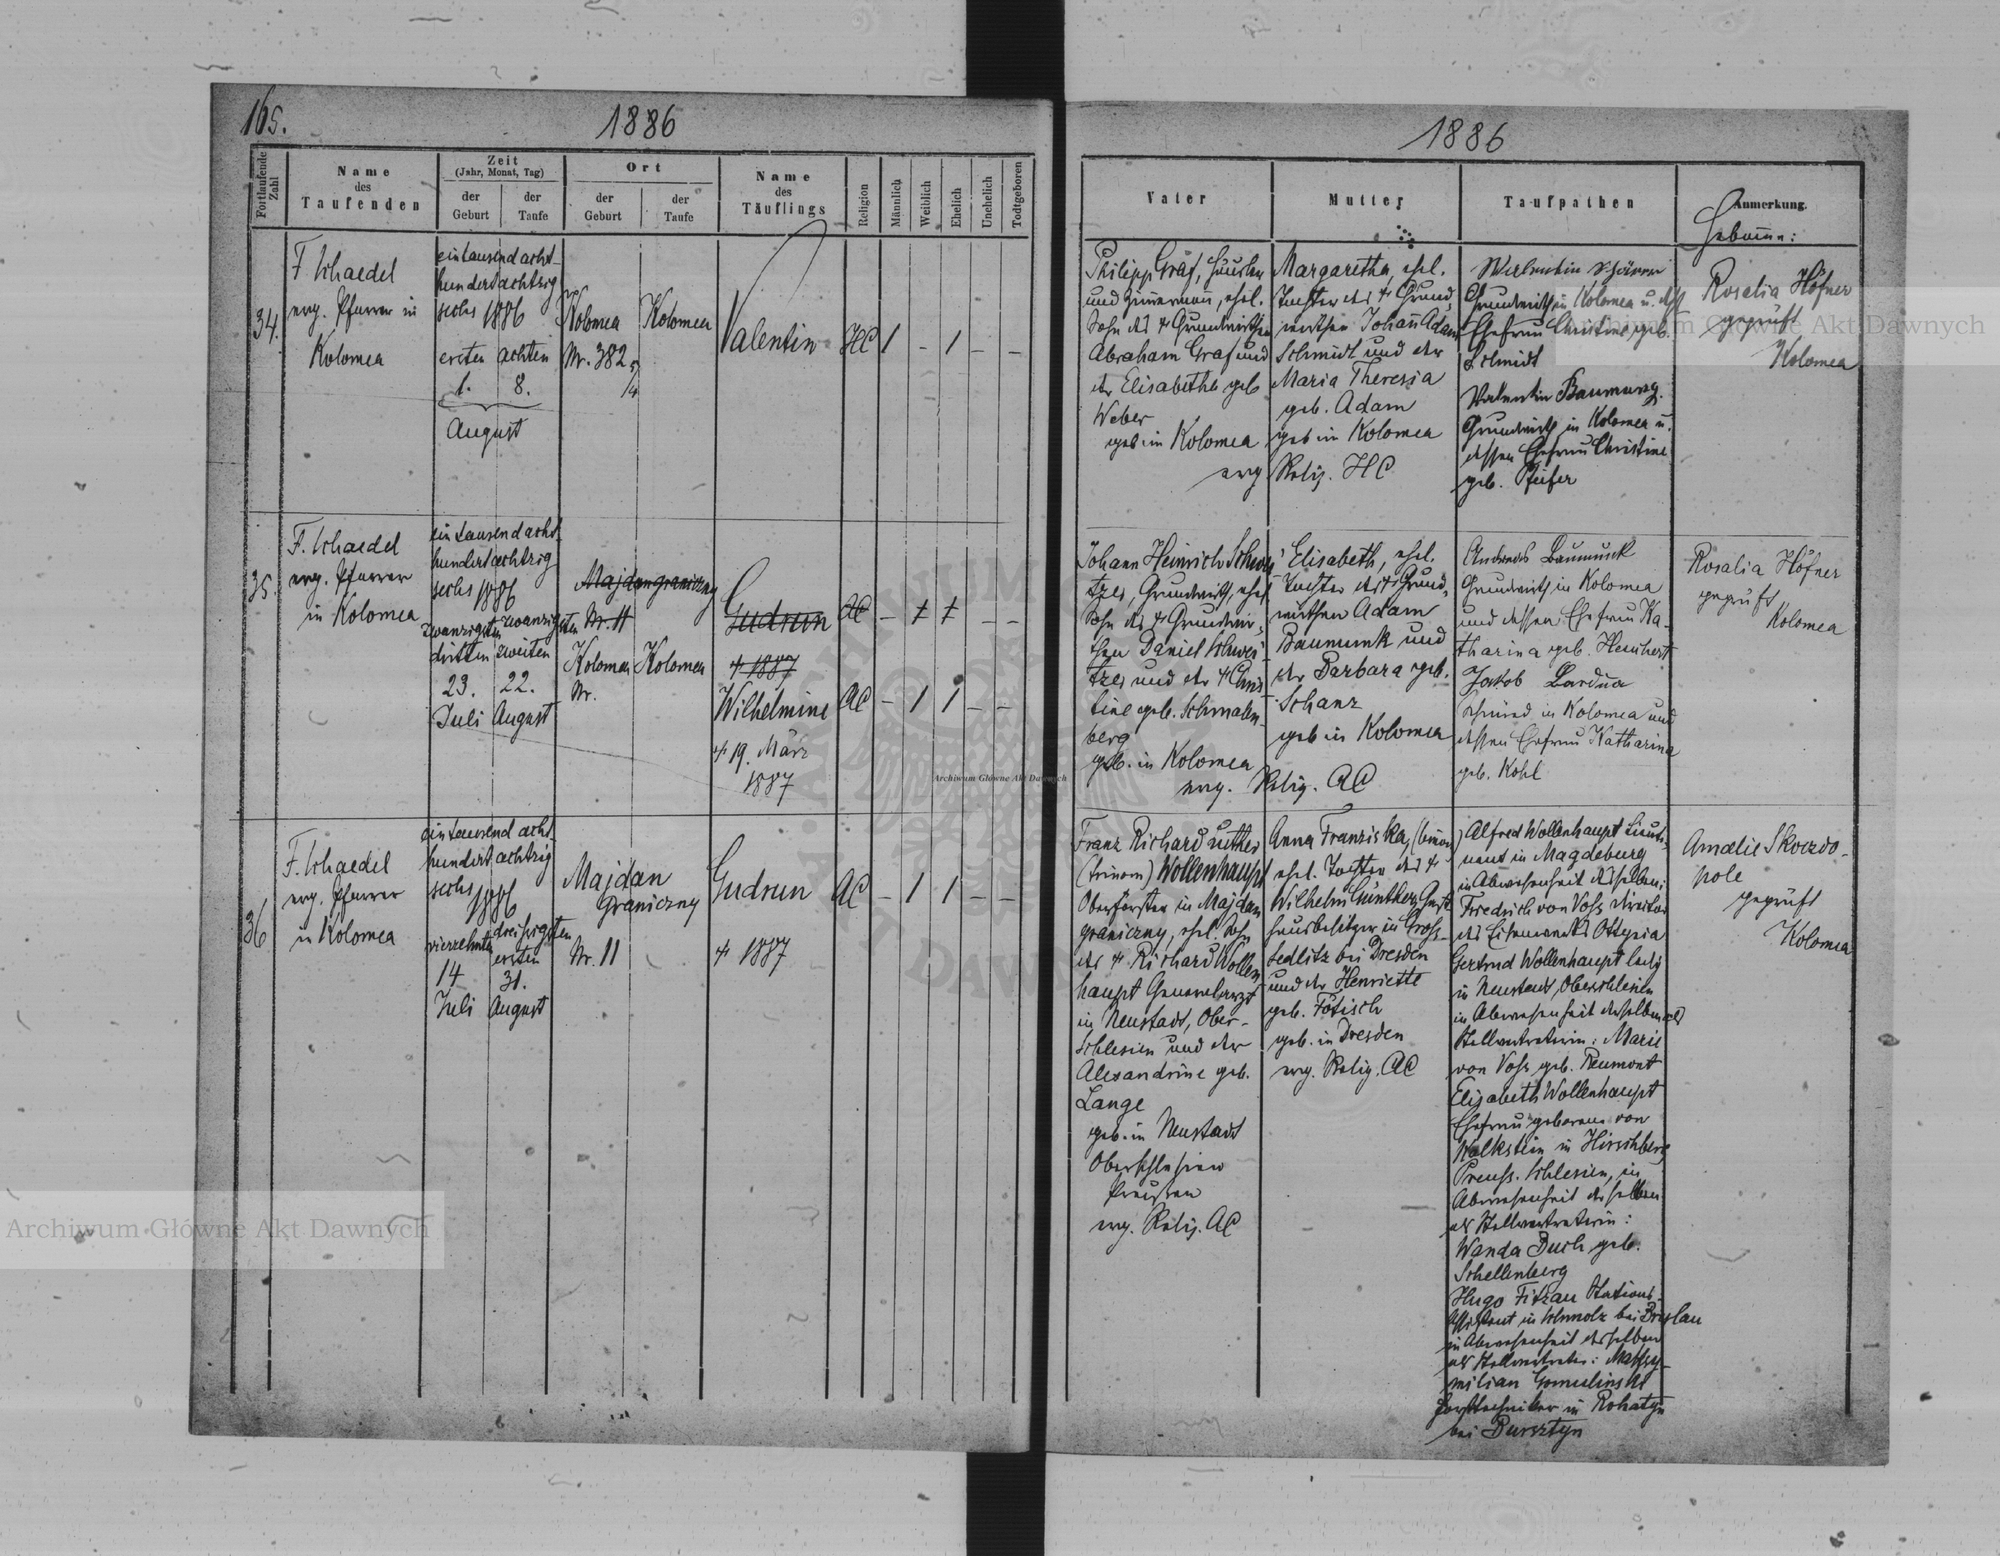 165.
1886
Fortlaufende Zahl
Name
des
Taufenden
Zeit
(Jahr, Monat, Tag)
der
Geburt
der
Taufe
Ort
der
Geburt
der
Taufe
Name
des
Täuflings
Religion
Männlich
Weiblich
Ehelich
Unehelich
Todtgeboren
34.
F Schaedel
evg. Pfarrer in
Kolomea
eintausend acht-
hundert achtzig
sechs 1886
ersten achten
1. 8.
August
Kolomea
Nr. 382
Kolomea
Valentin
HC
1 - 1 - -
35.
F. Schaedel
evg. Pfarrer
in Kolomea
eintausend acht-
hundert achtzig
sechs 1886
zwanzigsten zwanzigsten
dritten zweiten
23. 22.
Juli August
Majdan graniczny
Nr. 11
Kolomea
Nr.
Kolomea
Gudrun
+ 1887
Wilhelmine
+ 19. März
1887
AC
AC - 1 1 - -
36
F. Schaedel
evg. Pfarrer
in Kolomea
eintausend acht
hundert achtzig
sechs 1886
vierzehnten dreißigsten
ersten
14 31.
Juli August
Majdan
Graniczny
Nr. 11
Gudrun
+ 1887
AC - 1 1 - -
1886
Vater
Mutter
Taufpathen
Anmerkung
Hebamme:
Philipp Graf,
und Zimmermann, ehel.
Sohn des + Grundwirthen
Abraham Graf und
der Elisabetha geb
Weber
geb in Kolomea
evg
Margaretha, ehel.
Tochter des + Grund
wirthen Johann Adam
Schmidt und der
Maria Theresia
geb. Adam
geb in Kolomea
Relig. HC
Valentin
Grundwirth in Kolomea u. dess
Ehefrau Christine, geb.
Schmidt
Valentin Baumung
Grundwirth in Kolomea u.
dessen Ehefrau Christine
geb. Pfeifer
Rosalia Höfner
geprüft
Kolomea
Johann Heinrich Schwei-
tzer, Grundwirth, ehel
Sohn des + Grundwir-
then Daniel Schwei-
tzer und der + Chris-
tine geb. Schmalen-
berg
geb. in Kolomea
evg.
Elisabeth, ehel.
Tochter des + Grund-
wirthen Adam
Baumunk und
der Barbara geb.
Schanz
geb in Kolomea
Relig. AC
Andreas Baumunk
Grundwirth in Kolomea
und dessen Ehefrau Ka-
tharina geb. Heuchert
Jakob Bardua
Schmied in Kolomea und
dessen Ehefrau Katharina
geb. Kohl
Rosalia Höfner
geprüft
Kolomea
Franz Richard Luther
(trinom) Wollenhaupt
Oberförster in Majdan
graniczny, ehel. Sohn
des + Richard Wollen-
haupt Generalarzt
in Neustadt, Ober-
Schlesien und der
Alexandrine geb.
Lange
geb. in Neustadt
Oberschlesien
Preußen
evg. Relig. AC
Anna Franziska, (binom)
ehel. Tochter des +
Wilhelm Günther, Gast-
hausbesitzer in Gross-
sedlitz bei Dresden
und der Henriette
geb. Fötisch
geb. in Dresden
evg. Relig. AC
Alfred Wollenhaupt Lieute-
nant in Magdeburg
in Abwesenheit desselben:
Friedrich von Voss director
des Eisenwerks Ottynia
Gertrud Wollenhaupt ledig
in Neustadt, Oberschlesien
in Abwesenheit derselben als
Stellvertreterin: Marie
von Voss geb. Reumont
Elisabeth Wollenhaupt
Ehefrau geborene von
Walkstein in Hirschberg
Preuss. Schlesien, in
Abwesenheit derselben
als Stellvertreterin:
Wanda Buch geb.
Schellenberg
Hugo Fitzau Stations-
Assistent in Schmolz bei Breslau
in Abwesenheit desselben
als Stellvertreter: Maksy-
milian Gomulinski
Forsttechniker in Rohatyn
bei Bursztyn
Amalie Skoczdo-
pole
geprüft
Kolomea
Archiwum Główne Akt Dawnych
Archiwum Główne Akt Dawnych
Archiwum Główne Akt Dawnych